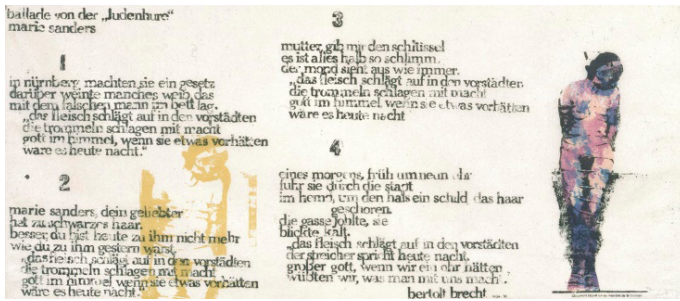 ballade von der „Judenhure“
marie sanders
1
in nürnberg machten sie ein gesetz
darüber weinte manches weib, das
mit dem falschen mann im bett lag.
„das fleisch schlägt auf in den vorstädten
die trommeln schlagen mit macht
gott im himmel, wenn sie etwas vorhätten
wäre es heute nacht.“
2
marie sanders, dein geliebter
hat zu schwarzes haar.
besser, du bist heute zu ihm nicht mehr
wie du zu ihm gestern warst.
„das fleisch schlägt auf in den vorstädten
die trommeln schlagen mit macht
gott im himmel wenn sie etwas vorhätten
wäre es heute nacht.“
3
mutter, gib mir den schlüssel
es ist alles halb so schlimm.
der mond sieht aus wie immer.
„das fleisch schlägt auf in den vorstädten
die trommeln schlagen mit macht
gott im himmel wenn sie etwas vorhätten
wäre es heute nacht
4
eines morgens, früh um neun uhr
fuhr sie durch die stadt
im hemd, um den hals ein schild das haar
geschoren.
die gasse johlte, sie
blickte kalt.
„das fleisch schlägt auf in den vorstädten
der streicher spricht heute nacht.
großer gott, wenn wir ein ohr hätten
wüßten wir, was man mit uns macht“.
bertolt brecht